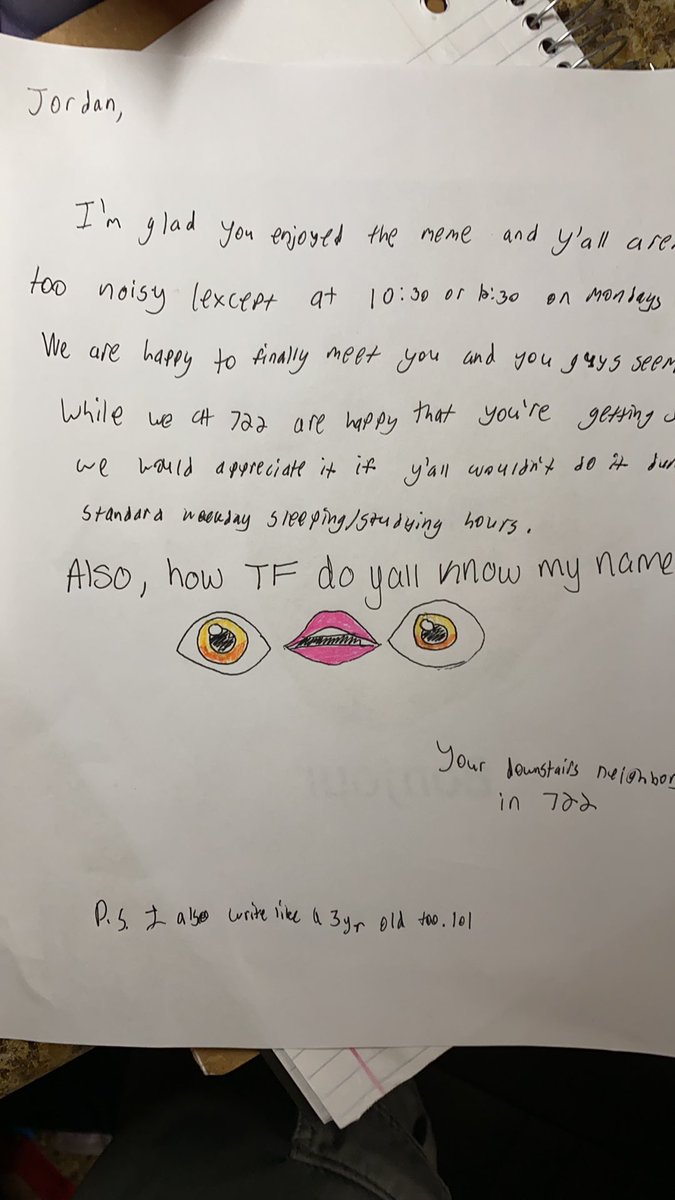 Jordan,
I'm glad you enjoyed the meme and y'all are
too noisy (except at 10:30 or 12:30 on Mondays
We are happy to finally meet you and you guys seem
While we at 722 are happy that you're getting
we would appreciate it if y'all wouldn't do it
standard weekday sleeping/studying hours.
Also, how TF do yall know my name
Your downstairs neighbor
in 722
P.S. I also write like a 3yr old too. lol